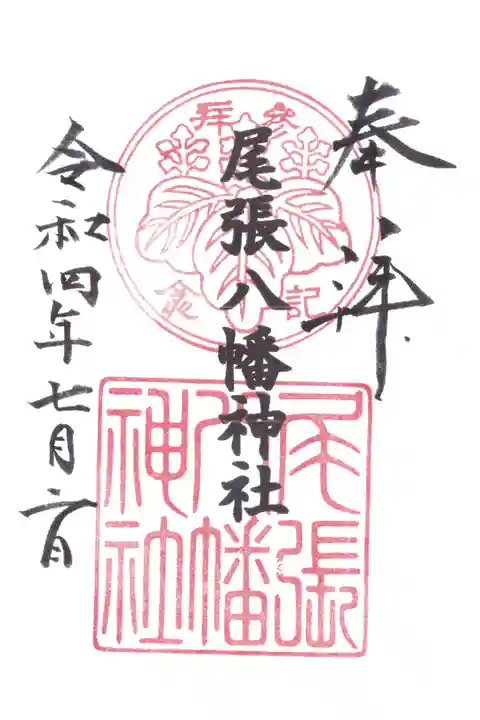 奉拝
参拝
記念
尾張八幡神社
尾張
八幡
神社
令和四年七月 日